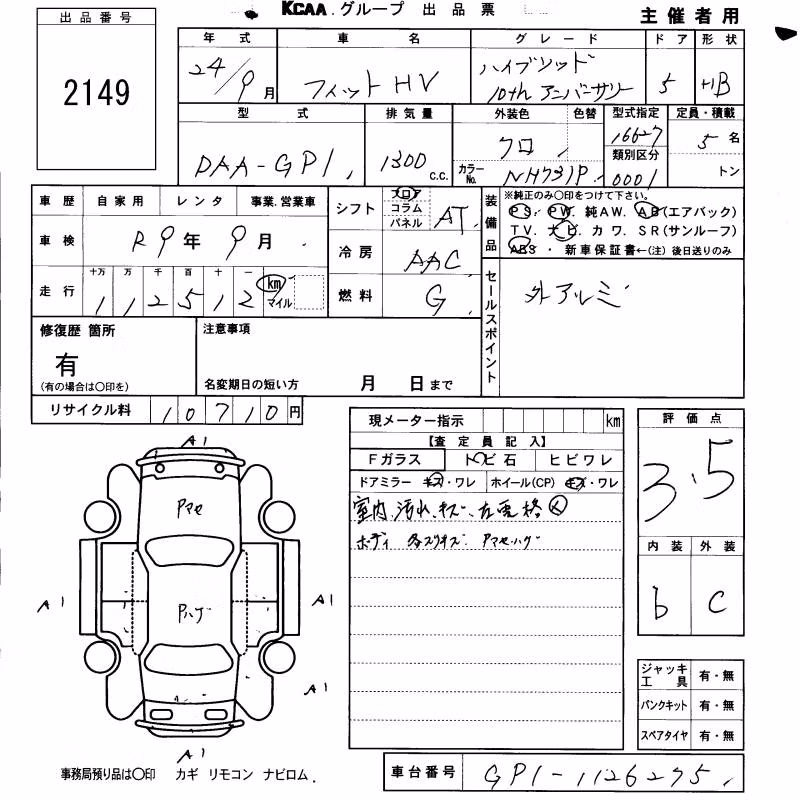 KCAA グループ 出品票
主催者用
出品番号
2149
年式 車名 グレード ドア 形状
24/9月 フィットHV ハイブリッド 5 HB
10th アニバーサリー
型式 排気量 外装色 色替 型式指定 定員・積載
DAA-GP1 1300 c.c. クロ 16627 5名
カラーNo. NH731P 類別区分 0001 トン
車歴 自家用 レンタ 事業.営業車
車検 R9年9月
走行 十万 万 千 百 十 一
112512 km マイル
シフト フロア コラム パネル AT
冷房 AAC
燃料 G
装備品
※純正のみ〇印をつけて下さい。
PS. PW. 純AW. AB(エアバック)
TV. ナビ カワ. SR(サンルーフ)
ABS・新車保証書←(注)後日送りのみ
セールスポイント
外アルミ
修復歴 箇所
有
(有の場合は〇印を)
注意事項
名変期日の短い方 月 日まで
リサイクル料 10710円
現メーター指示 km
【査定員記入】
Fガラス トビ石 ヒビワレ
ドアミラー キズ・ワレ ホイール(CP) キズ・ワレ
室内.汚れ.キズ. 左電格
ボディ 多スリキズ. Pマセハゲ
評価点
3.5
内装 外装
b C
A1
Pマセ
A1 Pハゲ A1
A1
A1
ジャッキ工具 有・無
パンクキット 有・無
スペアタイヤ 有・無
事務局預り品は〇印 カギ リモコン ナビロム.
車台番号 GP1-1126275